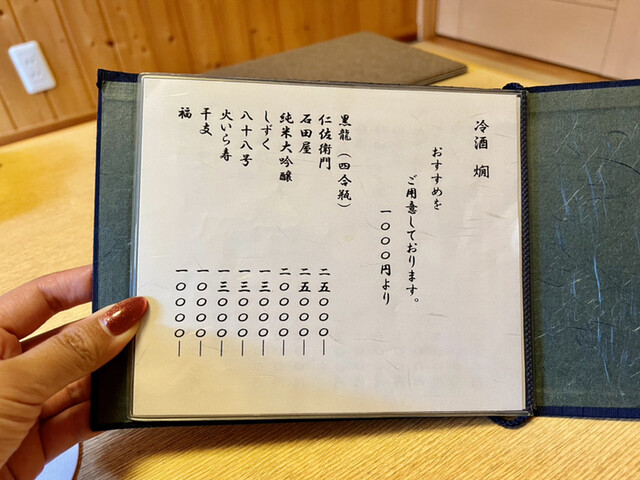 冷酒 燗
おすすめを
ご用意しております。
一〇〇〇円より
黒龍(四合瓶)
仁佐衛門 二五〇〇〇―
石田屋 二五〇〇〇―
純米大吟醸 二〇〇〇〇―
しずく 一三〇〇〇―
八十八号 一三〇〇〇―
火いら寿 一三〇〇〇―
干支 一〇〇〇〇―
福 一〇〇〇〇―